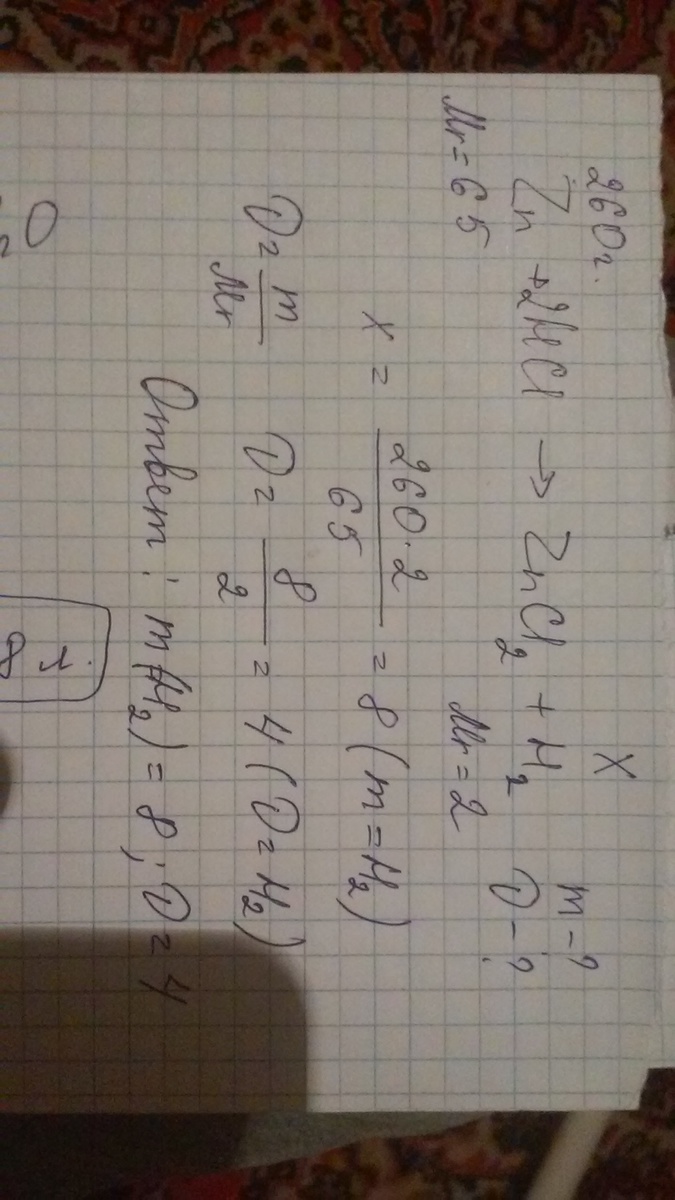 260г. X m-?
Zn + 2HCl → ZnCl₂ + H₂ D-?
Mr=65 Mr=2
x = 260·2 / 65 = 8 (m=H₂)
D = m / Mr D = 8 / 2 = 4 (D=H₂)
Ответ: m(H₂) = 8; D = 4